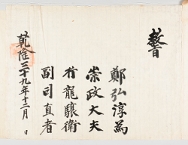 敎旨
鄭弘淳爲
崇政大夫
行龍驤衛
副司直者
乾隆三十九年十二月 日